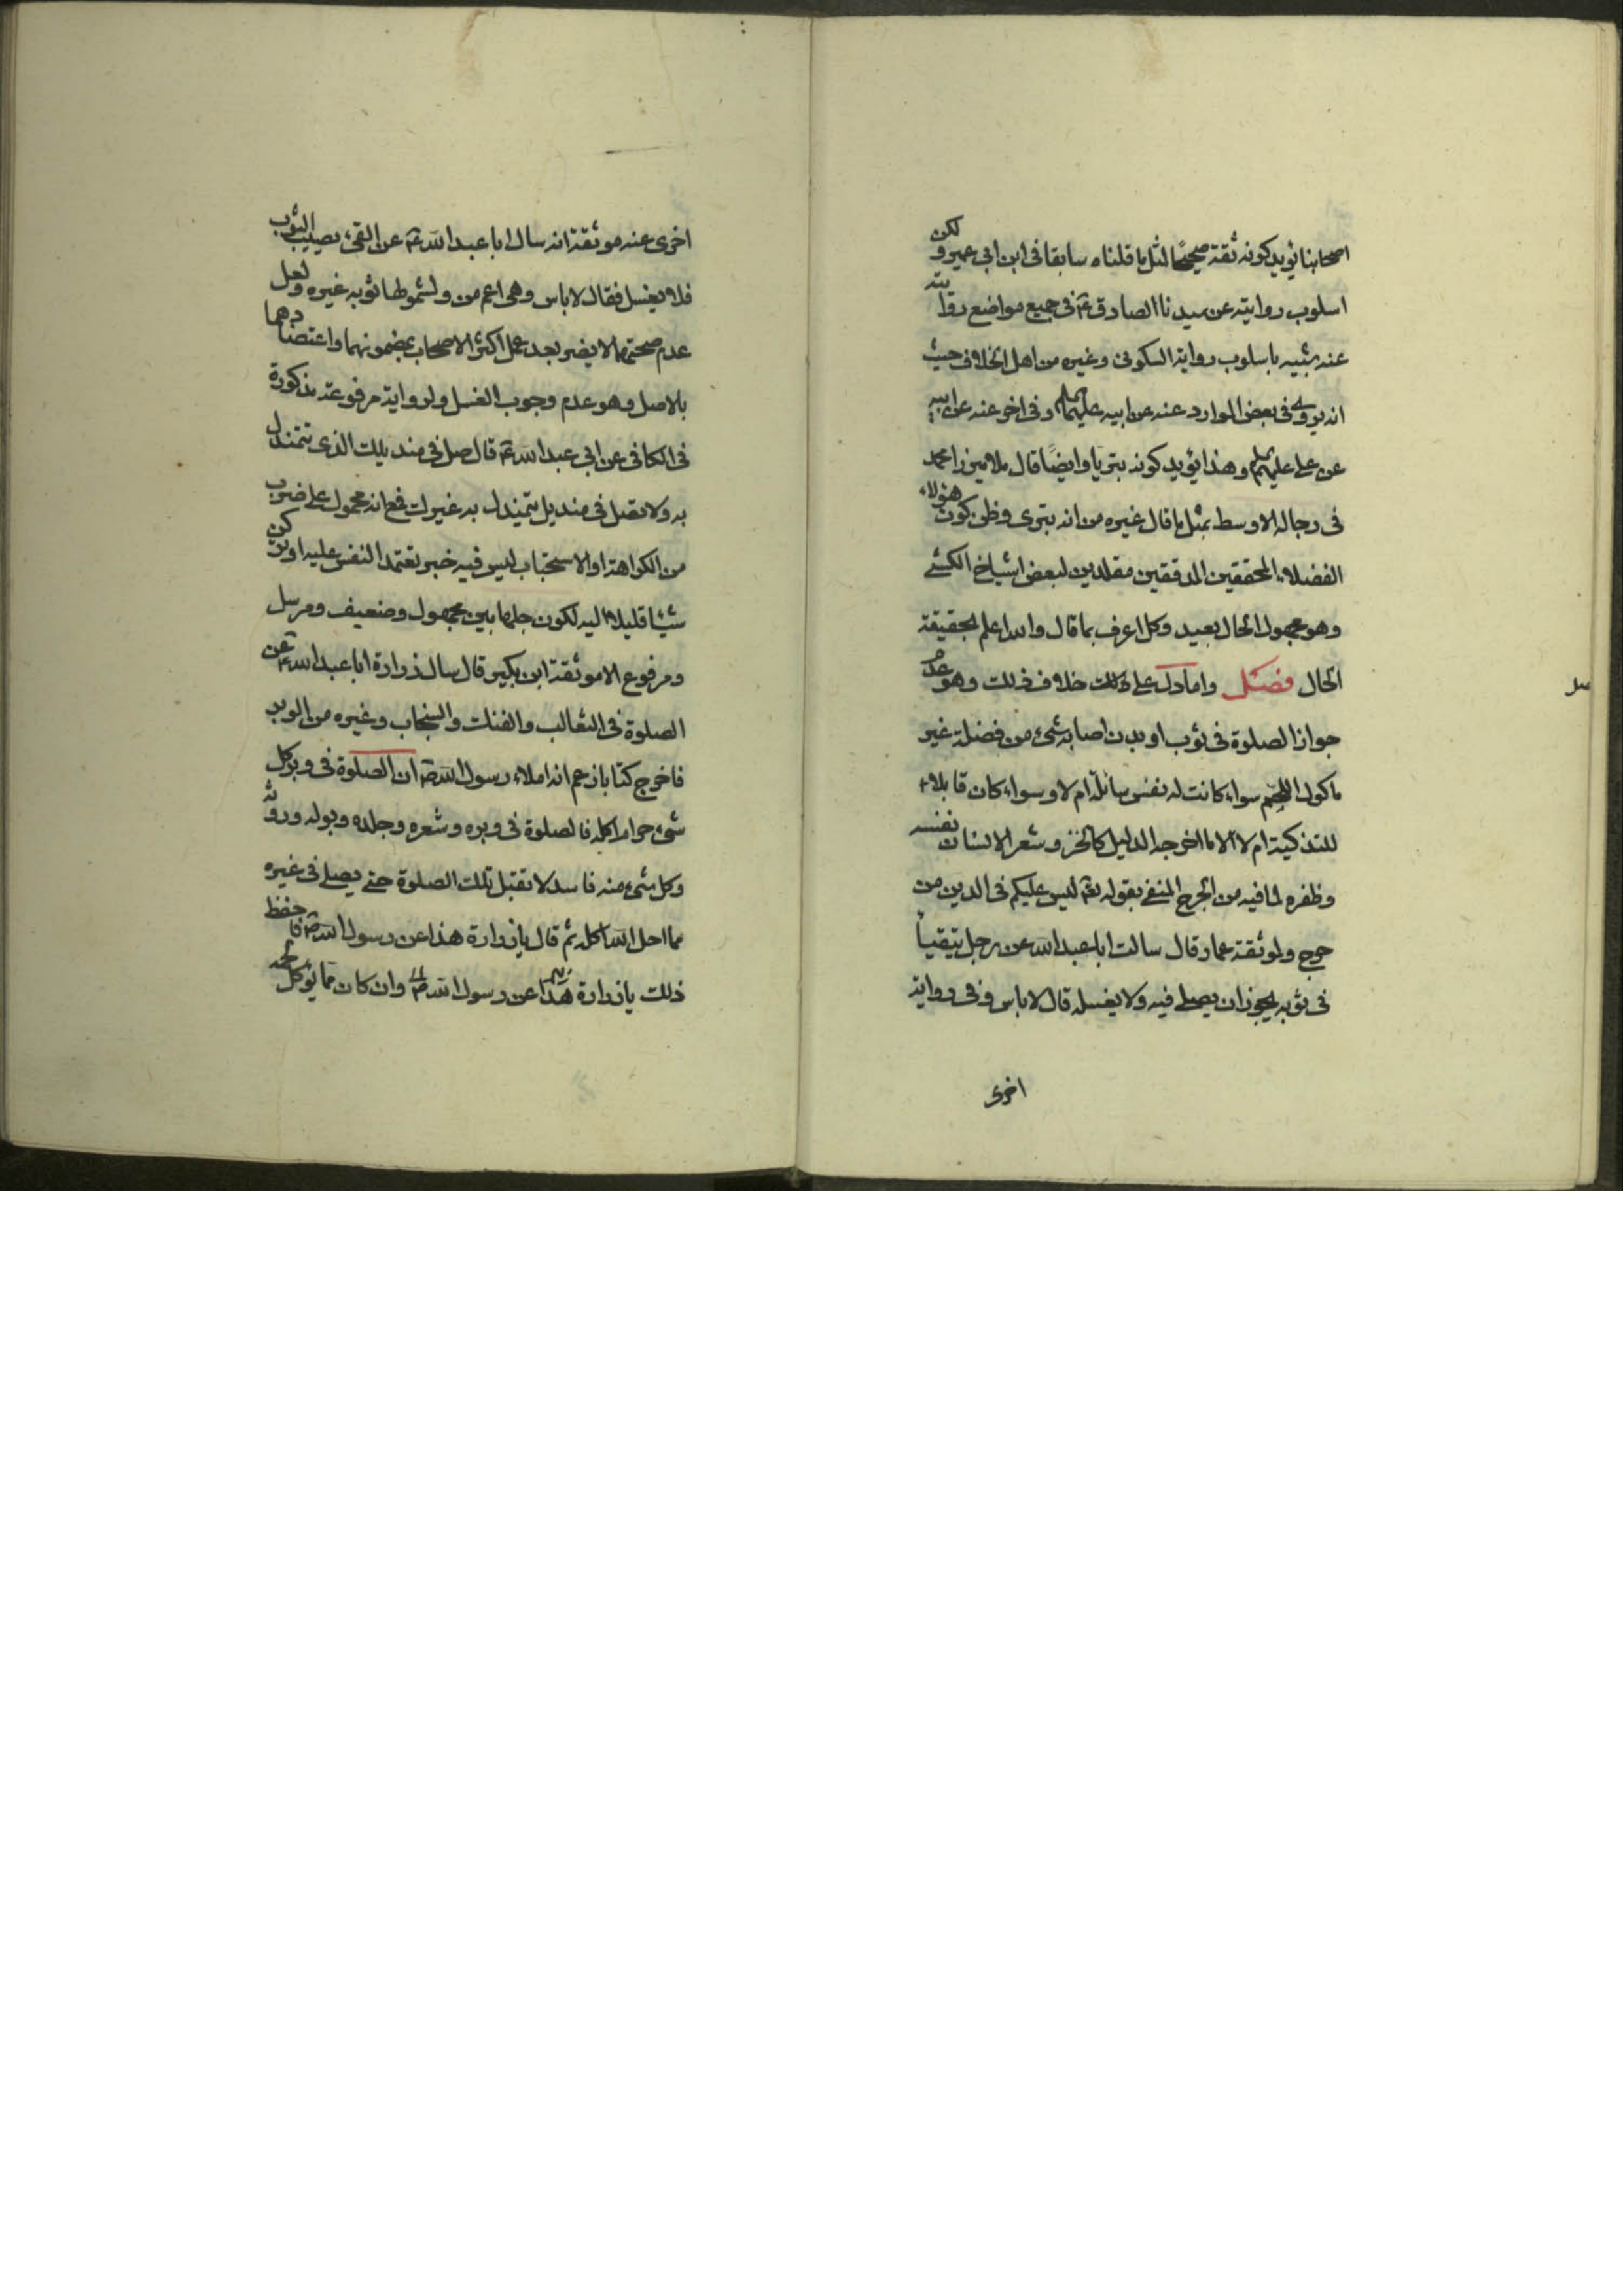 اصحابنا يؤيد كونه ثقة صحيحًا لمثل ما قلناه سابقا فى ابن ابى عمير و لكن
اسلوب روايته عن سيدنا الصادق ع فى جميع مواضع روايته
عنه شبيه باسلوب رواية السكونى وغيره من اهل الخلاف حيث
انه يروى فى بعض الموارد عنه عن ابيه عليهما السلم وفى اخرى عنه عن ابيه
عن على عليهم السلم وهذا يؤيد كونه بتريا وايضًا قال ملا ميرزا محمد
فى رجاله الاوسط بمثل ما قال غيره من انه بترى وظن كون هؤلاء
الفضلاء المحققين المدققين مقلدين لبعض اشياخ الكشى
وهو مجهول الحال بعيد وكل اعرف بما قال والله اعلم بحقيقة
الحال فصل واما دل على ذلك خلاف ذلك وهو عدم
جواز الصلوة فى ثوب او بدن اصابه شىء من فضلة غير
ماكول اللحم سواء كانت له نفس سائلة ام لا وسواء كان قابلا
للتذكية ام لا الا ما اخرجه الدليل كالخز وشعر الانسان نفسه
وظفره لما فيه من الحرج المنفى بقوله تع ليس عليكم فى الدين من
حرج ولموثقة عمار قال سالت ابا عبد الله عن رجل يتقيأ
فى ثوبه يجوز ان يصلى فيه ولا يغسله قال لا باس وفى رواية
اخرى
اخرى عنه موثقة انه سال ابا عبد الله ع عن القىء يصيب الثوب
فلا يغسل فقال لا باس وهى اعم من ولشمولها ثوبه غيره ولعل
عدم صحتهما لا يضر بعد عمل اكثر الاصحاب بمضمونهما واعتضادهما
بالاصل وهو عدم وجوب الغسل ولرواية مرفوعة مذكورة
فى الكافى عن ابى عبد الله ع قال صل فى منديلك الذى تتمندل
به ولا تصل فى منديل يتمندل به غيرك فمع انه محمول على ضرب
من الكراهة او الاستحباب ليس فيه خبر تعتمد النفس عليه او تركن
شيئا قليلا اليه لكون جلها بين مجهول وضعيف ومرسل
ومرفوع الا موثقة ابن بكير قال سال زرارة ابا عبد الله ع عن
الصلوة فى الثعالب والفنك والسنجاب وغيره من الوبر
فاخرج كتابا زعم انه املاء رسول الله ص ان الصلوة فى وبر كل
شىء حرام اكله فالصلوة فى وبره وشعره وجلده وبوله وروثه
وكل شىء منه فاسد لا تقبل تلك الصلوة حتى يصلى فى غيره
مما احل الله اكله ثم قال يا زرارة هذا عن رسول الله ص فاحفظ
ذلك يا زرارة هذا عن رسول الله ص وان كان مما يؤكل لحمه